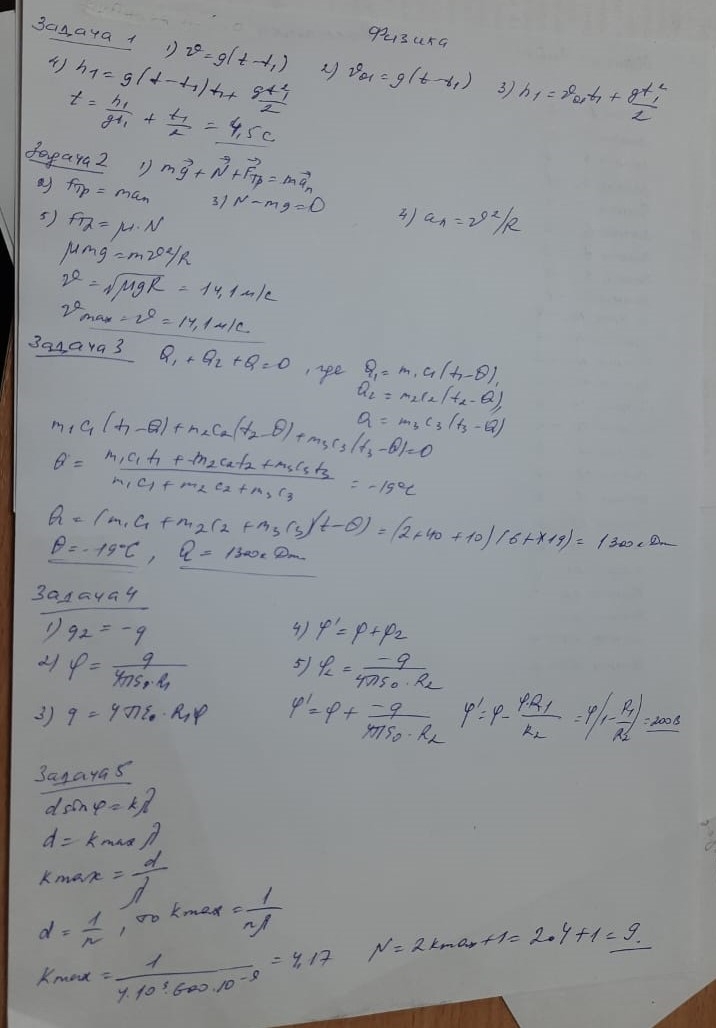 Физика
Задача 1 1) v = g(t-t₁) 2) v₀₁ = g(t-t₁) 3) h₁ = v₀₁t₁ + gt₁²/2
4) h₁ = g(t-t₁)t₁ + gt₁²/2
t = h₁/gt₁ + t₁/2 = 4,5 с
Задача 2 1) mg⃗ + N⃗ + F⃗тр = ma⃗n
2) Fтр = man 3) N - mg = 0 4) an = v²/R
5) Fтр = μ·N
μmg = mv²/R
v = √μgR = 14,1 м/с
vmax = v = 14,1 м/с
Задача 3 Q₁ + Q₂ + Q = 0, где Q₁ = m₁c₁(t₁-θ),
Q₂ = m₂c₂(t₂-θ),
Q = m₃c₃(t₃-θ)
m₁c₁(t₁-θ) + m₂c₂(t₂-θ) + m₃c₃(t₃-θ) = 0
θ = (m₁c₁t₁ + m₂c₂t₂ + m₃c₃t₃)/(m₁c₁ + m₂c₂ + m₃c₃) = -19°C
Q = (m₁c₁ + m₂c₂ + m₃c₃)(t-θ) = (2+40+10)(6+19) = 1300кДж
θ = -19°C, Q = 1300кДж
Задача 4
1) q₂ = -q 4) φ' = φ + φ₂
2) φ = q/4πε₀·R₁ 5) φ₂ = -q/4πε₀·R₂
3) q = 4πε₀·R₁φ φ' = φ + -q/4πε₀·R₂ φ' = φ - φ·R₁/R₂ = φ(1-R₁/R₂) = 200В
Задача 5
d sinφ = kλ
d = kmax λ
kmax = d/λ
d = 1/n, то kmax = 1/nλ
kmax = 1/4·10⁵·600·10⁻⁹ = 4,17 N = 2kmax+1 = 2·4+1 = 9.